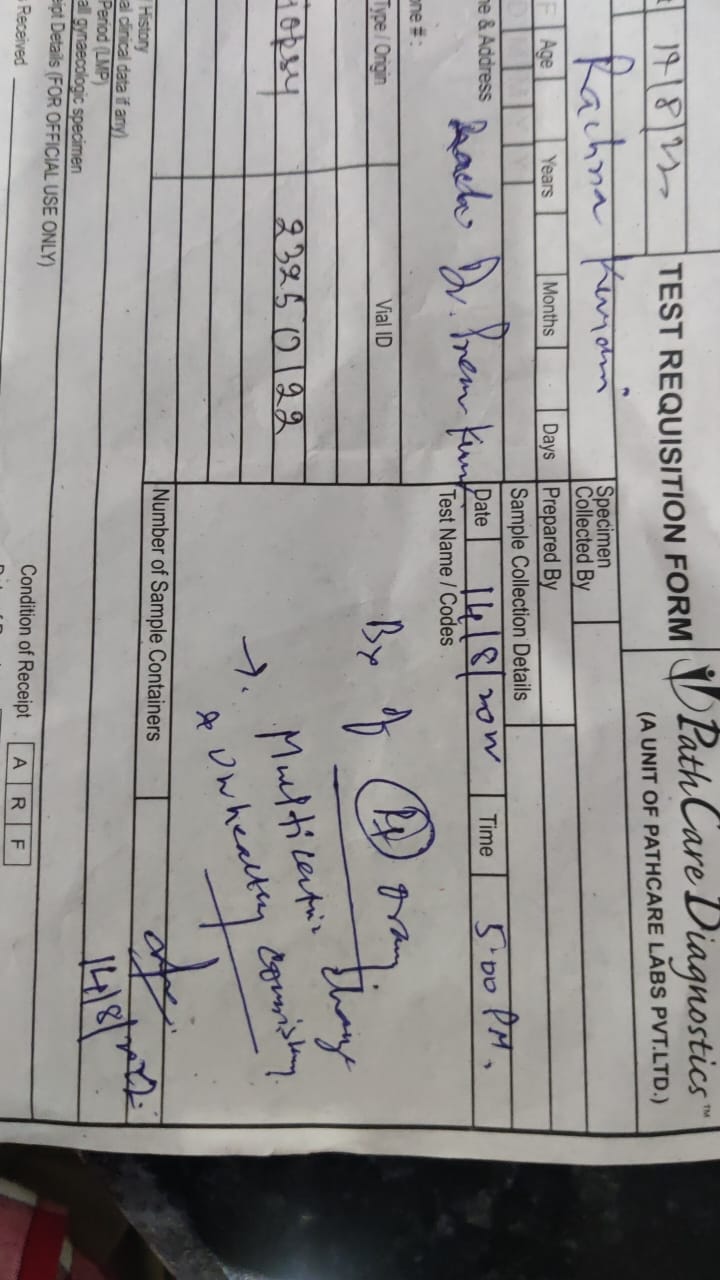 14/8/22
TEST REQUISITION FORM
PathCare Diagnostics™
(A UNIT OF PATHCARE LABS PVT.LTD.)
Rachna Kumari
Specimen
Collected By
F Age Years Months Days
Prepared By
Sample Collection Details
Date 14/8/2022 Time 5:00 PM.
& Address Dr. Prem Kum
Test Name / Codes
ne #:
Type / Origin Vial ID
Bx of Rt ovary
opsy 23250122
→ Multicentric change
& unhealthy consistency.
Number of Sample Containers
History
al clinical data if any)
Period (LMP)
all gynaecologic specimen
14/8/2022.
ipt Details (FOR OFFICIAL USE ONLY)
Received
Condition of Receipt A R F